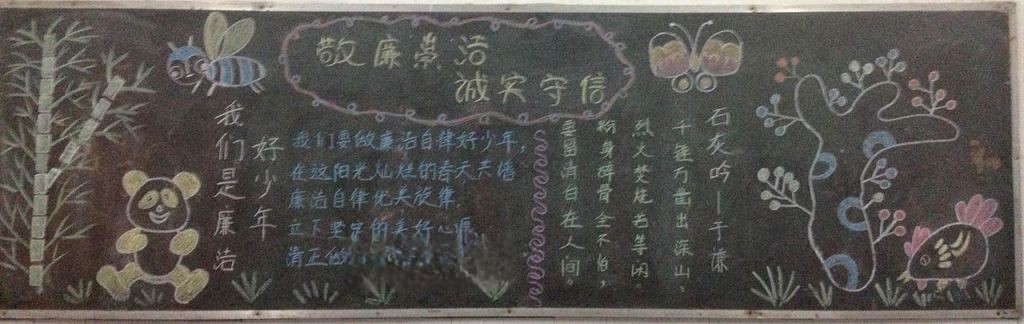 敬廉崇洁
诚实守信
我们是廉洁
好少年
我们要做廉洁自律好少年，
在这阳光灿烂的春天
廉洁自律优美旋律，
立下坚定的美好心愿，
清正做
石灰吟—于谦
千锤万凿出深山，
烈火焚烧若等闲。
粉身碎骨全不怕，
要留清白在人间。